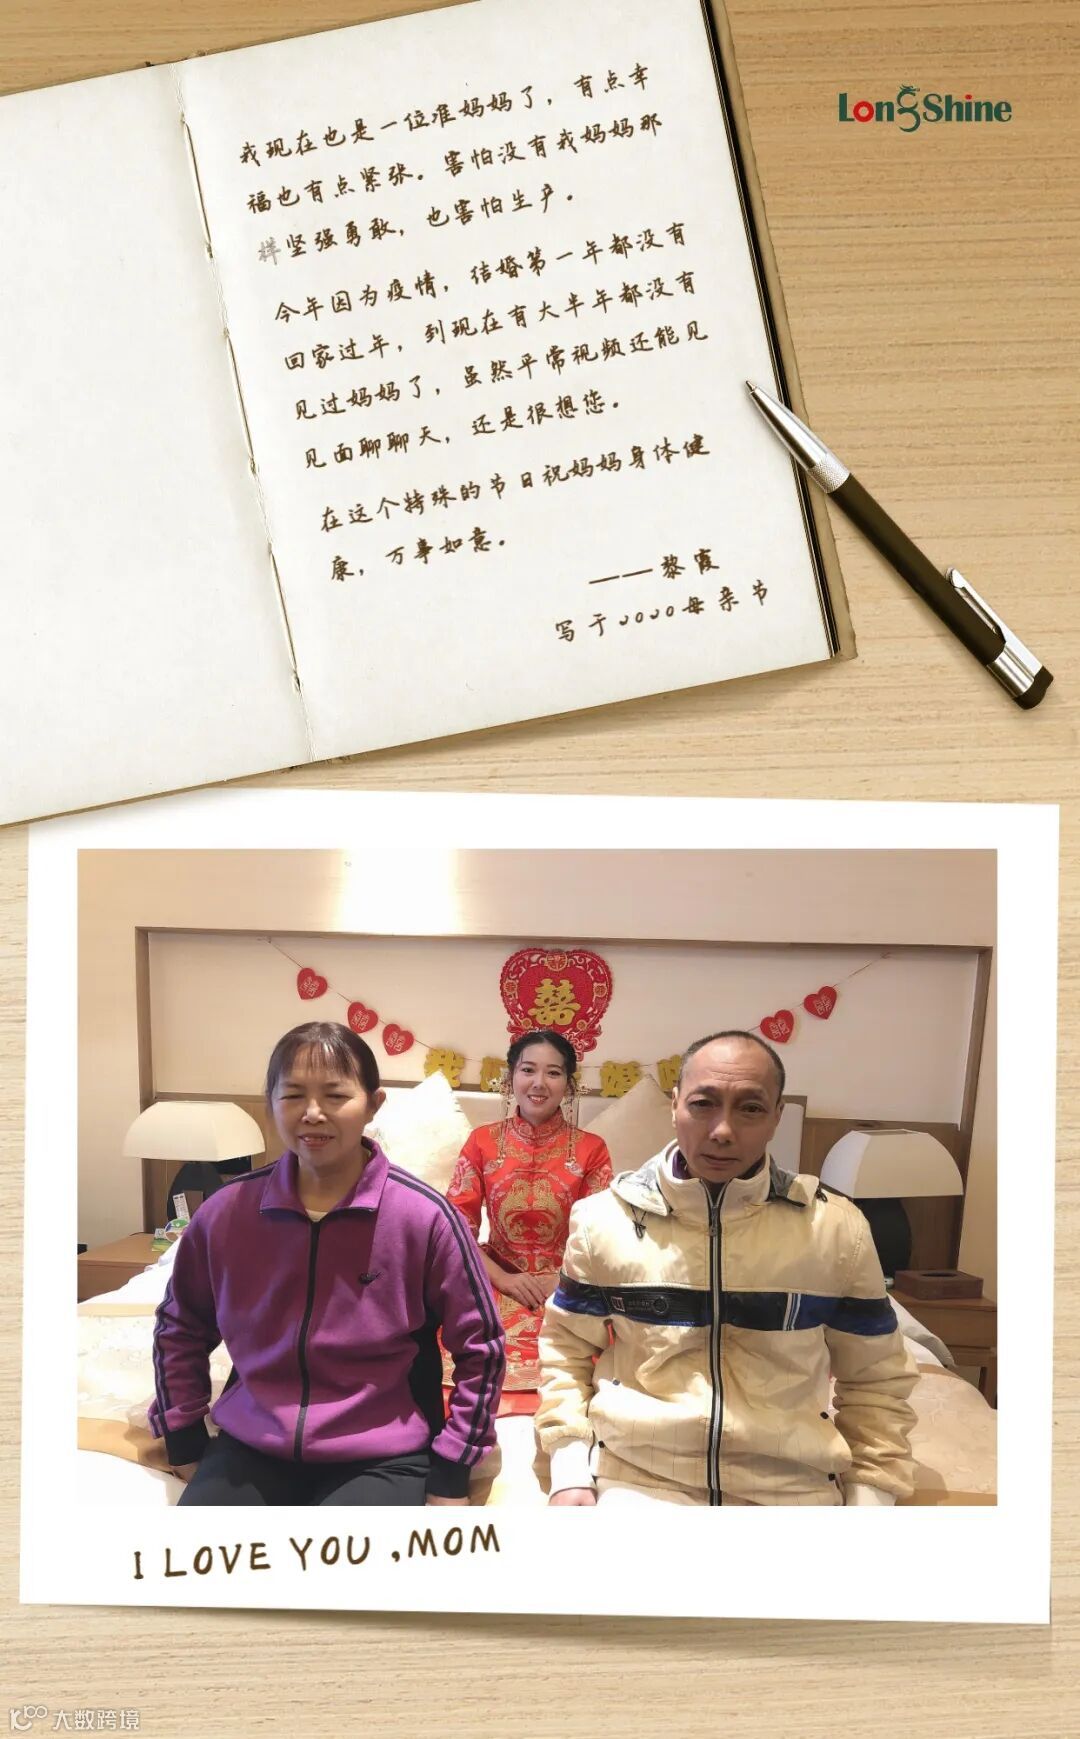 LongShine
我现在也是一位准妈妈了，有点幸
福也有点紧张。害怕没有我妈妈那
样坚强勇敢，也害怕生产。
今年因为疫情，结婚第一年都没有
回家过年，到现在有大半年都没有
见过妈妈了，虽然平常视频还能见
见面聊聊天，还是很想您。
在这个特殊的节日祝妈妈身体健
康，万事如意。
——黎霞
写于2020母亲节
囍
I LOVE YOU ,MOM
大数跨境